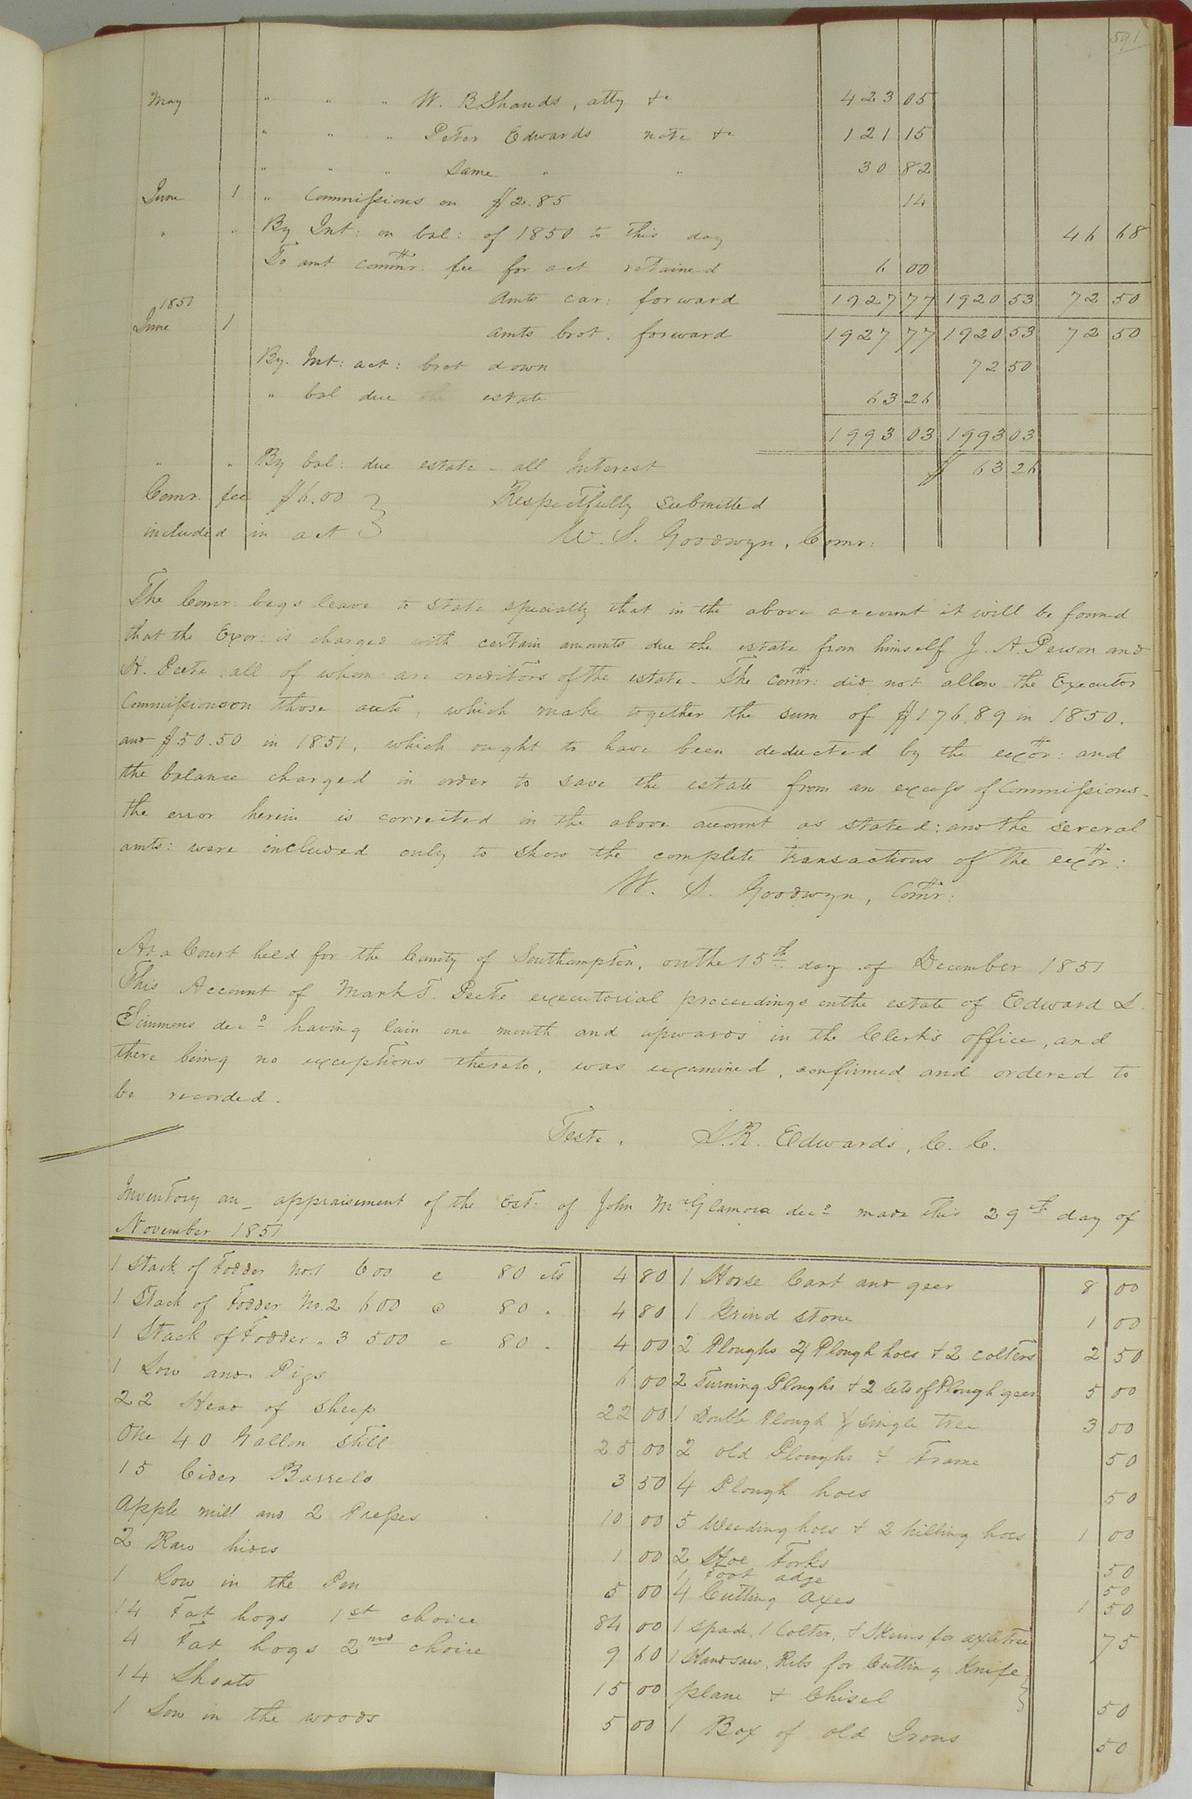 591
May " " " W. B Shands, atty &c 423 05
" " " Peter Edwards note &c 121 15
" " " Same " " 30 82
June 1 " Commissions on $2.85 14
" " By Int: on bal: of 1850 to this day 46 68
To amt commr: fee for act retained 6 00
Amts car: forward 1927 77 1920 53 72 50
1851
June 1 amts brot. forward 1927 77 1920 53 72 50
By. Int: act: brot down 72 50
" bal due the estate 63 26
1993 03 1993 03
" " By bal: due estate - all Interest $ 63 26
Comr. fee $6.00 } Respectfully submitted
included in act } W. S. Goodwyn, Comr:
The Comr: begs leave to state specially that in the above account it will be found
that the Exor: is charged with certain amounts due the estate from himself J. A. Person and
H. Peete all of whom are creditors of the estate. The Comr: did not allow the Executor
Commissions on those accts, which make together the sum of $176,89 in 1850.
and $50.50 in 1851, which ought to have been deducted by the exor: and
the balance charged in order to save the estate from an excess of Commissions.
the error herein is corrected in the above account as stated: and the several
amts: were included only to show the complete transactions of the exor:
W. S. Goodwyn, Comr:
At a Court held for the County of Southampton, on the 15th day of December 1851
This Account of Mark T. Peete executorial proceedings on the estate of Edward S.
Simmons decd having lain one month and upwards in the Clerk's office, and
there being no exceptions thereto, was examined, confirmed and ordered to
be recorded.
Teste, L. R. Edwards, C. C.
Inventory an_ appraisement of the Est: of John McGlamora decd made this 29th day of
November 1851
1 Stack of Fodder No.1 600 @ 80 cts 4 80 1 Horse Cart and geer 8 00
1 Stack of Fodder No.2 600 @ 80 " 4 80 1 Grind stone 1 00
1 Stack of Fodder " 3 500 @ 80 " 4 00 2 Ploughs 4 Plough hoes & 2 colters 2 50
1 Sow and Pigs 6 00 2 Turning Ploughs & 2 sets of Plough geer 5 00
22 Head of Sheep 22 00 1 Double Plough & single tree 3 00
One 40 Gallon Still 25 00 2 old Ploughs & Frame 50
15 Cider Barrels 3 50 4 Plough hoes 50
Apple mill and 2 Presses 10 00 5 Weeding hoes & 2 hilling hoes 1 00
2 Raw hides 1 00 2 Hoe Forks 50
1 Foot adze 50
1 Sow in the Pen 5 00 4 Cutting axes 1 50
14 Fat hogs 1st choice 84 00 1 Spade, 1 Colter, & Skeins for axletree 75
4 Fat hogs 2nd choice 9 60 1 Handsaw, Ribs for Cutting Knife }
14 Shoats 15 00 plane & Chisel } 50
1 Sow in the woods 5 00 1 Box of old Irons 50